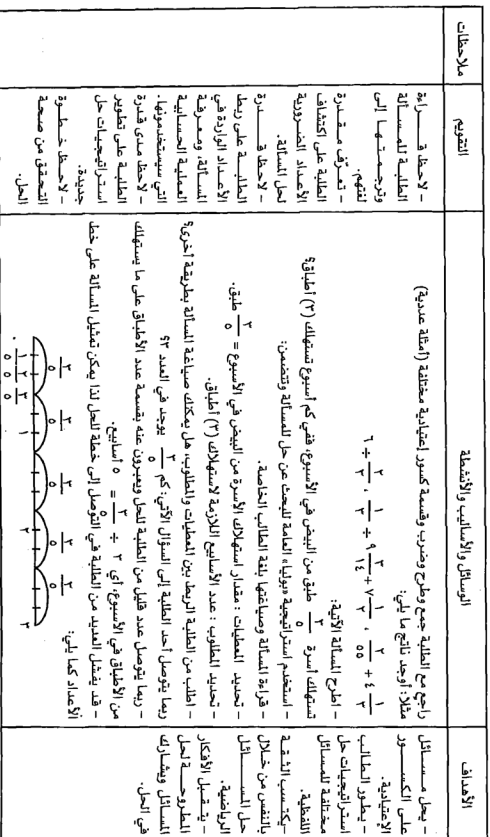 الأهداف
يحل مسائل
على الكسور
الإعتيادية.
- يطور الطالب
استراتيجيات حل
مختلفة للمسائل
اللفظية.
- يكتسب الثقة
بالنفس من خلال
حل المسائل
الرياضية.
- يتقبل الأفكار
المطروحة لحل
المسائل ويشارك
في الحل.
الوسائل والأساليب والأنشطة
راجع مع الطلبة جمع وطرح وضرب وقسمة كسور إعتيادية مختلفة (أمثلة عددية)
مثلا: أوجد ناتج ما يلي:
- اطرح المسألة الآتية:
تستهلك أسرة ٣/٥ طبق من البيض في الأسبوع، ففي كم أسبوع تستهلك (٣) أطباق؟
- استخدم استراتيجية «بوليا» العامة للبحث عن حل للمسألة وتتضمن:
- قراءة المسألة وصياغتها بلغة الطالب الخاصة.
- تحديد المعطيات: مقدار استهلاك الأسرة من البيض في الأسبوع = ٣/٥ طبق.
- تحديد المطلوب: عدد الأسابيع اللازمة لاستهلاك (٣) أطباق.
- اطلب من الطلبة الربط بين المعطيات والمطلوب، هل يمكنك صياغة المسألة بطريقة أخرى؟
ربما يتوصل أحد الطلبة إلى السؤال الآتي: كم ٣/٥ يوجد في العدد ٣؟
- ربما يتوصل عدد قليل من الطلبة للحل ويعبرون عنه بقسمة عدد الأطباق على ما يستهلك
من الأطباق في الأسبوع، أي ٣ ÷ ٣/٥ = ٥ أسابيع.
- قد يفشل العديد من الطلبة في التوصل إلى خطة للحل لذا يمكن تمثيل المسألة على خط
الأعداد كما يلي:
٣/٥ ٣/٥ ٣/٥ ٣/٥ ٣/٥
التقويم
- لاحظ قراءة
الطلبة للمسألة
وترجمتها إلى
لغتهم.
- تعرّف مقدرة
الطلبة على اكتشاف
الأعداد الضرورية
لحل المسألة.
- لاحظ قدرة
الطلبة على ربط
الأعداد الواردة في
المسألة، ومعرفة
العملية الحسابية
التي سيستخدمونها.
- لاحظ مدى قدرة
الطلبة على تطوير
استراتيجيات حل
جديدة.
- لاحظ خطوة
التحقق من صحة
الحل.
ملاحظات